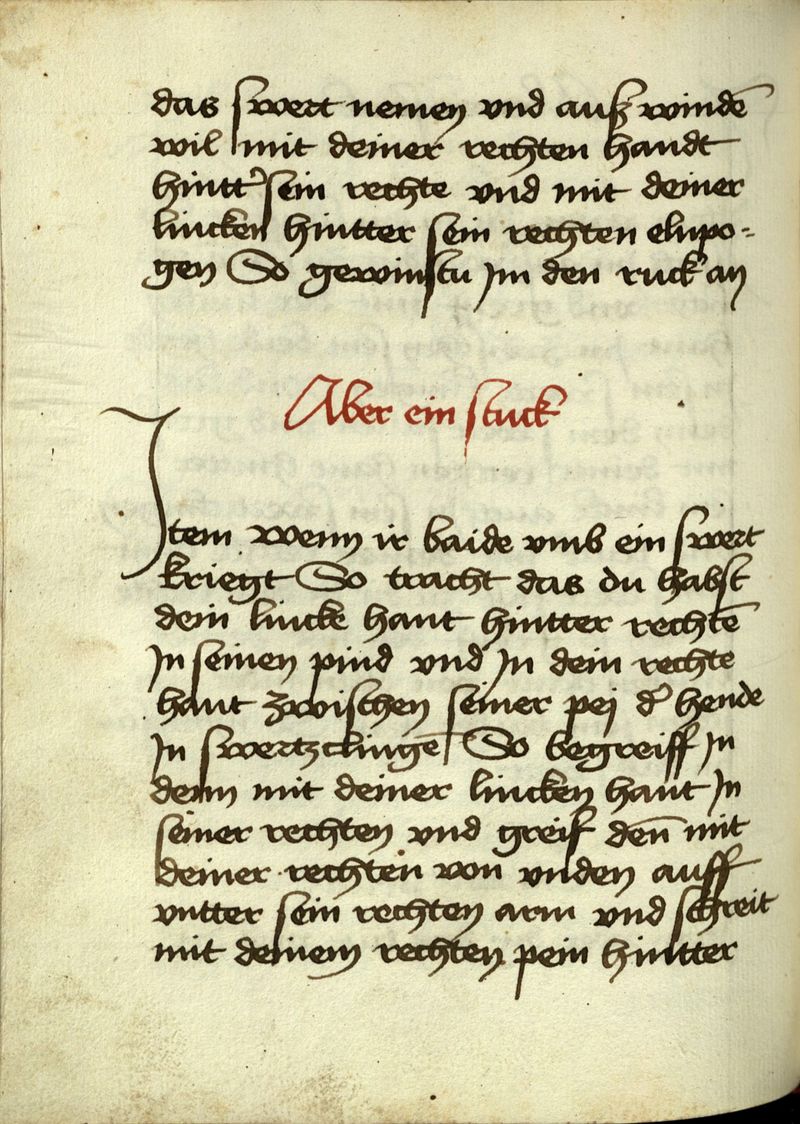 das swert nemen vnd auß windē
wil mit deiner rechten handt
hintt' sein rechte vnd mit deiner
lincken hintter sein rechten elnpo=
gen So gewinstu Jm den ruck an
Aber ein stuck
Jtem wenn ir baide vmb ein swert
kriegt So tracht das du habst
dein lincke hant hintter rechtē
Jn seinen pind vnd Jn dein rechte
hant zwischen seiner pej d' hende
Jn swertzclingē So begreiff Jn
denn mit deiner lincken hant Jn
seiner rechten vnd greif den̄ mit
deiner rechten von vnden auff
vntter sein rechten arm vnd schreit
mit deinem rechten pein hintter